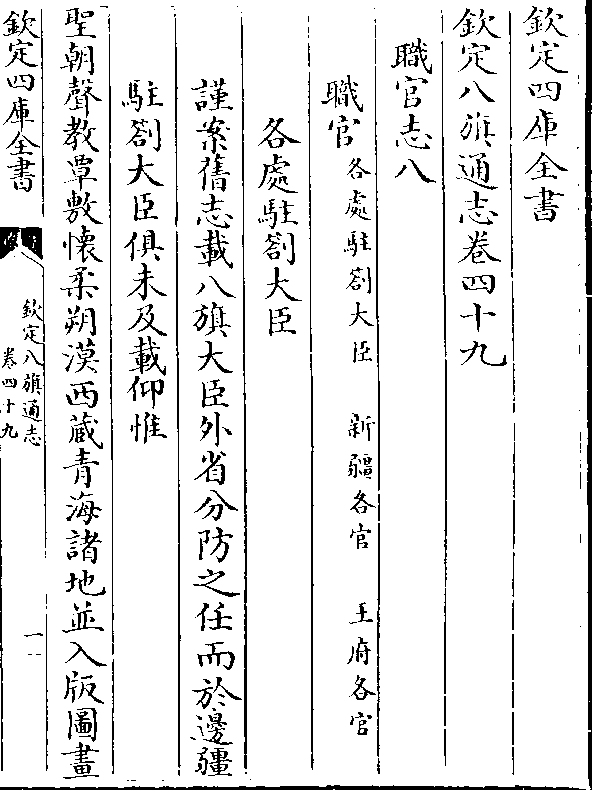 欽定四庫全書
欽定八旗通志卷四十九
職官志八
職官 各處駐劄大臣 新疆各官 王府各官
各處駐劄大臣
謹案舊志載八旗大臣外省分防之任而於邊疆
駐劄大臣俱未及載仰惟
聖朝聲教覃敷懷柔朔漠西藏青海諸地並入版圖畫
欽定四庫全書
欽定八旗通志
卷四十九
一